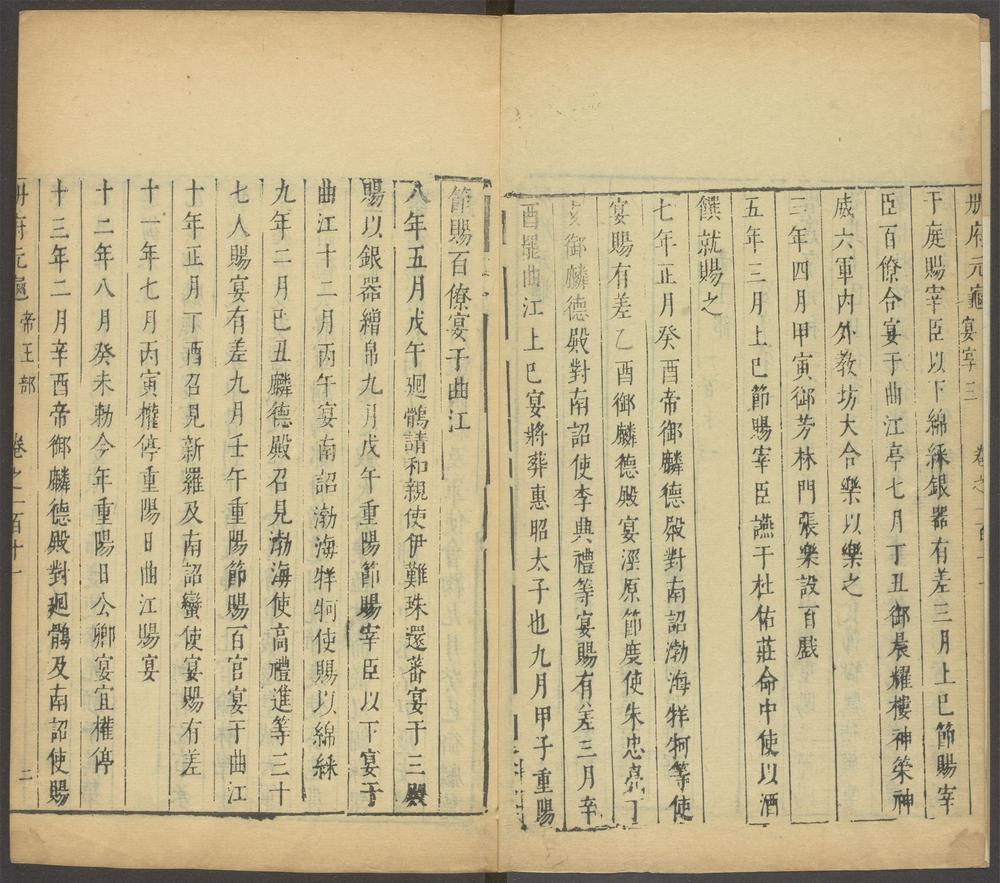 冊府元龜 宴享三 卷之一百十一
于庭賜宰臣以下綿綵銀器有差三月上巳節賜宰
臣百僚合宴于曲江亭七月丁丑御晨耀樓神策神
威六軍內外教坊大合樂以樂之
三年四月甲寅御芳林門張樂設百戲
五年三月上巳節賜宰臣讌于杜佑莊命中使以酒
饌就賜之
七年正月癸酉帝御麟德殿對南詔渤海牂牁等使
宴賜有差乙酉御麟德殿宴涇原節度使朱忠亮丁
亥御麟德殿對南詔使李典禮等宴賜有差三月辛
酉罷曲江上巳宴將葬惠昭太子也九月甲子重陽
節賜百僚宴于曲江
八年五月戊午廻鶻請和親使伊難珠還蕃宴于三殿
賜以銀器繒帛九月戊午重陽節賜宰臣以下宴于
曲江十二月丙午宴南詔渤海牂牁使賜以綿綵
九年二月巳丑麟德殿召見渤海使高禮進等三十
七人賜宴有差九月壬午重陽節賜百官宴于曲江
十年正月丁酉召見新羅及南詔蠻使宴賜有差
十一年七月丙寅權停重陽日曲江賜宴
十二年八月癸未勅今年重陽日公卿宴宜權停
十三年二月辛酉帝御麟德殿對廻鶻及南詔使賜
冊府元龜 帝王部 卷之一百十一 二